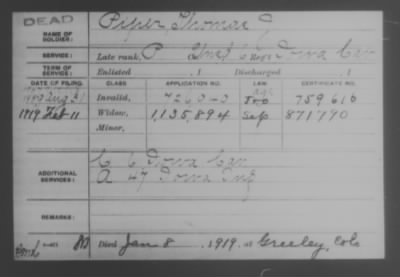 DEAD
NAME OF SOLDIER: Piper Thomas
SERVICE: Late rank, P Iowa Cav
TERM OF SERVICE: Enlisted , 1 Discharged , 1
DATE OF FILING. CLASS. APPLICATION NO. LAW. CERTIFICATE NO.
Aug Invalid, 759616
1919 Feb 11 Widow, 1,135,894 871790
Minor,
C 6 Iowa Cav
ADDITIONAL SERVICES: A 47 Iowa Inf
REMARKS:
Died Jan 8 , 1919, at Greeley, Colo